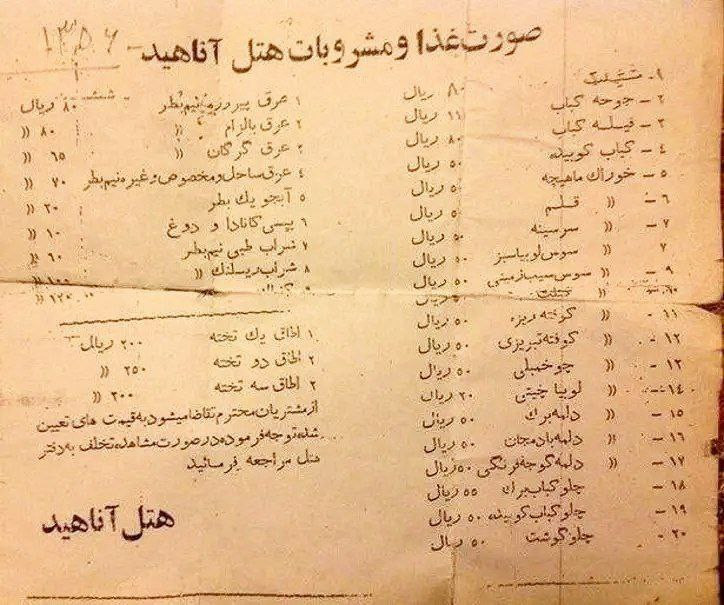 صورت غذا و مشروبات هتل آناهید
۱۳۵۶
۱ -
۲ - جوجه کباب ۸۰ ریال
۳ - فیله کباب ۱۱ ریال
۴ - کباب کوبیده ۸۰ ریال
۵ - خوراك ماهیچه ۵۰ ریال
۶ - « قلم ۵۰ ریال
۷ - « سرسینه ۵۰ ریال
۷ « سوس لوبیاسبز ۵۰ ریال
۹ - « سوس سیب زمینی ۵۰ ریال
۱۰ - « ۵۰ ریال
۱۱ - « کوفته ریزه ۵۰ ریال
۱۲ - « کوفته تبریزی ۵۰ ریال
۱۳ - « ۵۰ ریال
۱۴ - « لوبیا چیتی ۲۰ ریال
۱۵ - « دلمه برك ۵۰ ریال
۱۶ - « دلمه بادمجان ۵۰ ریال
۱۷ - « دلمه گوجه فرنگی ۵۰ ریال
۱۸ - چلو کباب برك ۵۵ ریال
۱۹ - چلو کباب کوبیده ۵۰ ریال
۲۰ - چلو گوشت ۵۰ ریال
۱ عرق نیم بطر ۸۰ ریال
۲ عرق بالزام « ۸۰ «
۳ عرق گرگان « ۶۵ «
۴ عرق ساحل و مخصوص و غیره نیم بطر ۷۰ «
۵ آبجو یك بطر ۲۰ «
۶ پپسی کانادا و دوغ ۱۰ «
۷ شراب طبی نیم بطر ۶۰ «
۸ شراب ریسلنك « ۱۰۰ «
۹ ۱۲۰ «
۱ اطاق یك تخته ۲۰۰ ریال
۲ اطاق دو تخته ۲۵۰ «
۳ اطاق سه تخته ۳۰۰ «
از مشتریان محترم تقاضا میشود به قیمت های تعیین
شده توجه فرموده در صورت مشاهده تخلف به دفتر
هتل مراجعه فرمائید
هتل آناهید